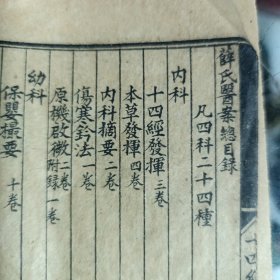 薛氏醫案總目錄
凡四科二十四種
内科
十四經發揮 三卷
本草發揮 四卷
内科摘要 二卷
傷寒鈐法 一卷
原機啟微 二卷 附錄一卷
幼科
保嬰撮要 十卷